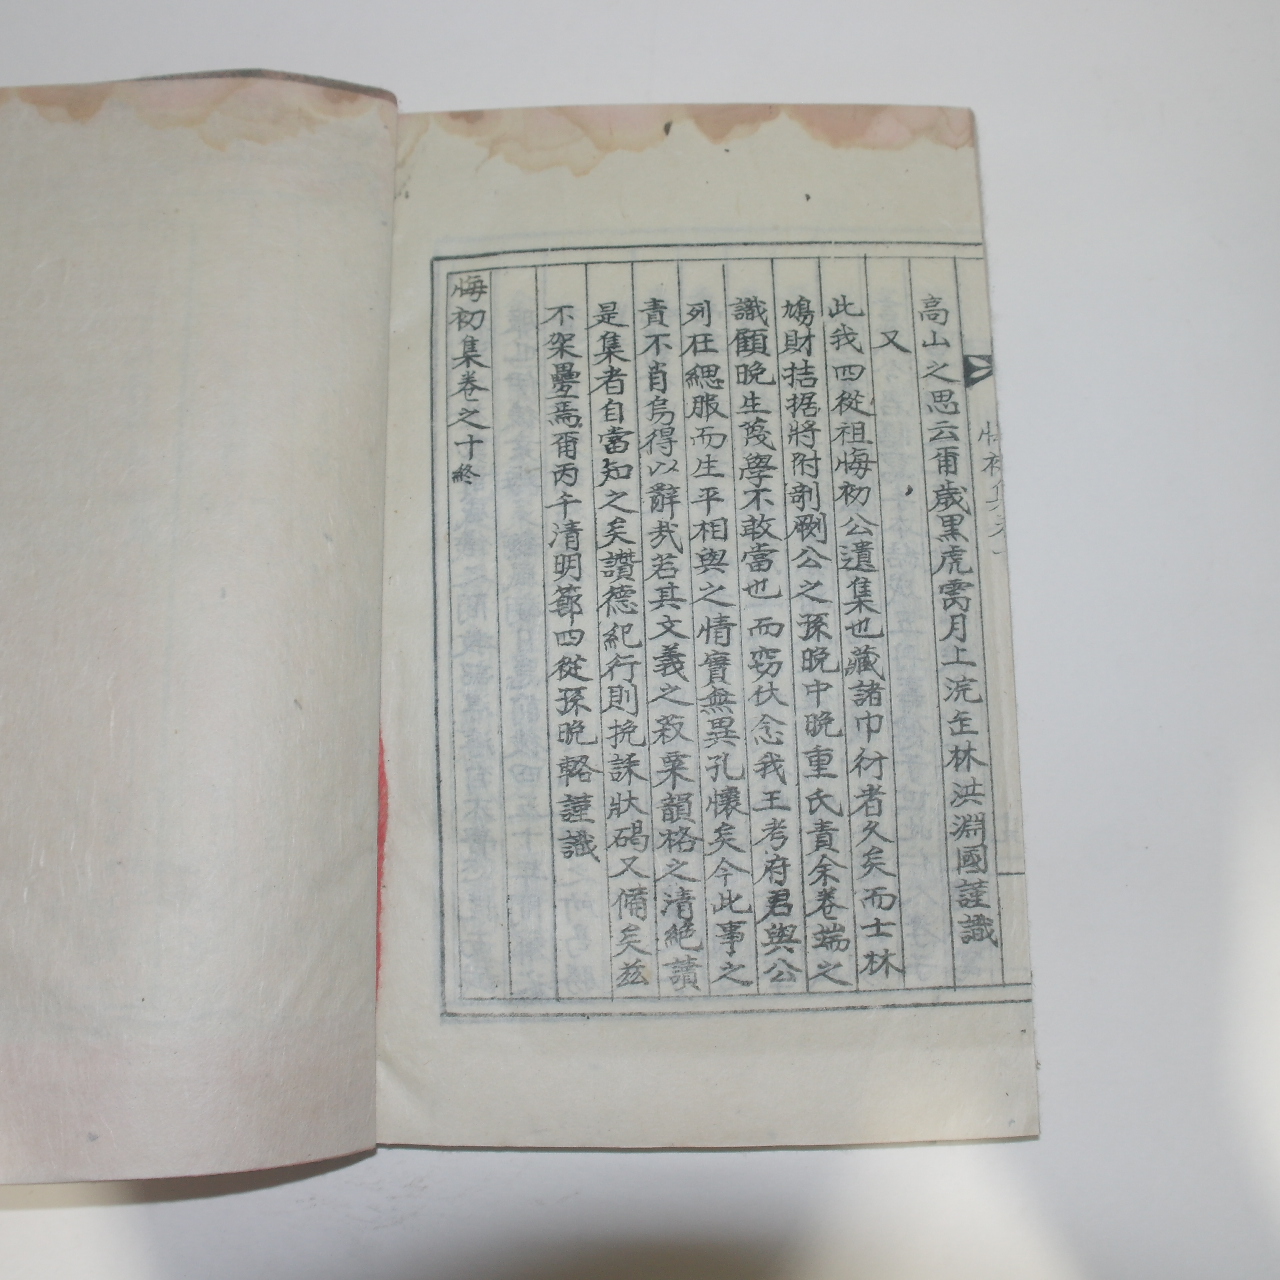 高山之思云爾歲黑虎雩月上浣缶林洪淵國謹識
又
此我四從祖悔初公遺集也藏諸巾衍者久矣而士林
鳩財拮据將附剞劂公之孫晩中晩重氏責余卷端之
識顧晩生蔑學不敢當也而窃伏念我王考府君與公
列在緦服而生平相與之情實無異孔懷矣今此事之
責不肖烏得以辭哉若其文義之菽粟韻格之清絶讀
是集者自當知之矣讚德紀行則挽誄狀碣又備矣茲
不架疊焉爾丙午清明節四從孫晩輅謹識
悔初集卷之十終